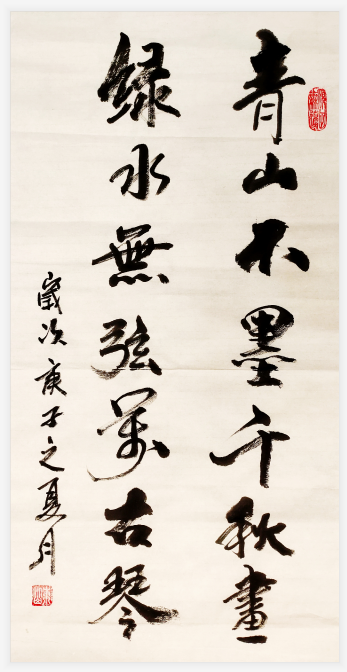 青山不墨千秋畫
緑水無弦萬古琴
歲次庚子之夏月